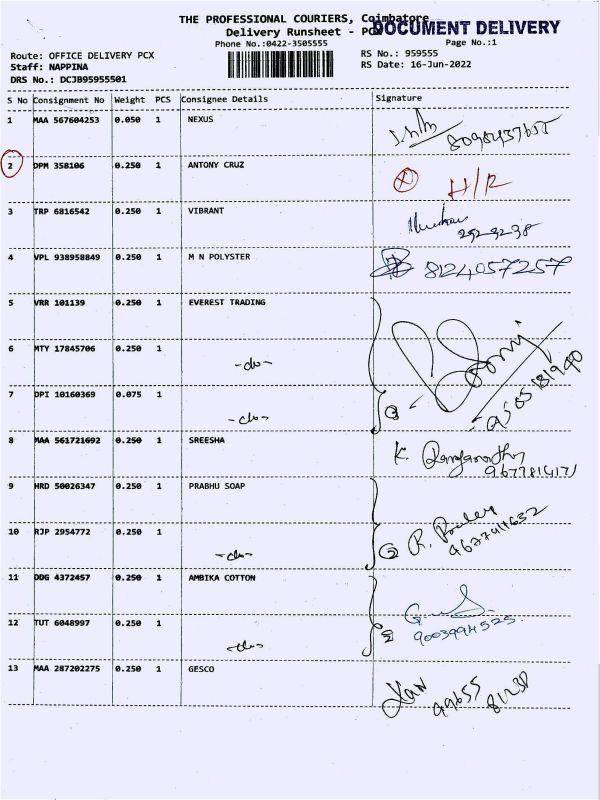 THE PROFESSIONAL COURIERS, Coimbatore
DOCUMENT DELIVERY
Delivery Runsheet - PCX
Phone No.:0422-3505555
Page No.:1
Route: OFFICE DELIVERY PCX
RS No.: 959555
Staff: NAPPINA
RS Date: 16-Jun-2022
DRS No.: DCJB95955501
S No Consignment No Weight PCS Consignee Details Signature
1 MAA 567604253 0.050 1 NEXUS
2 DPM 358106 0.250 1 ANTONY CRUZ H/R
3 TRP 6816542 0.250 1 VIBRANT
4 VPL 938958849 0.250 1 M N POLYSTER 8124057257
5 VRR 101139 0.250 1 EVEREST TRADING
6 MTY 17845706 0.250 1 -do-
7 DPI 10160369 0.075 1 -do- 3
8 MAA 561721692 0.250 1 SREESHA K.
9 HRD 50026347 0.250 1 PRABHU SOAP
10 RJP 2954772 0.250 1 -do- 2 R.
11 DDG 4372457 0.250 1 AMBIKA COTTON
12 TUT 6048997 0.250 1 -do- 2
13 MAA 287202275 0.250 1 GESCO